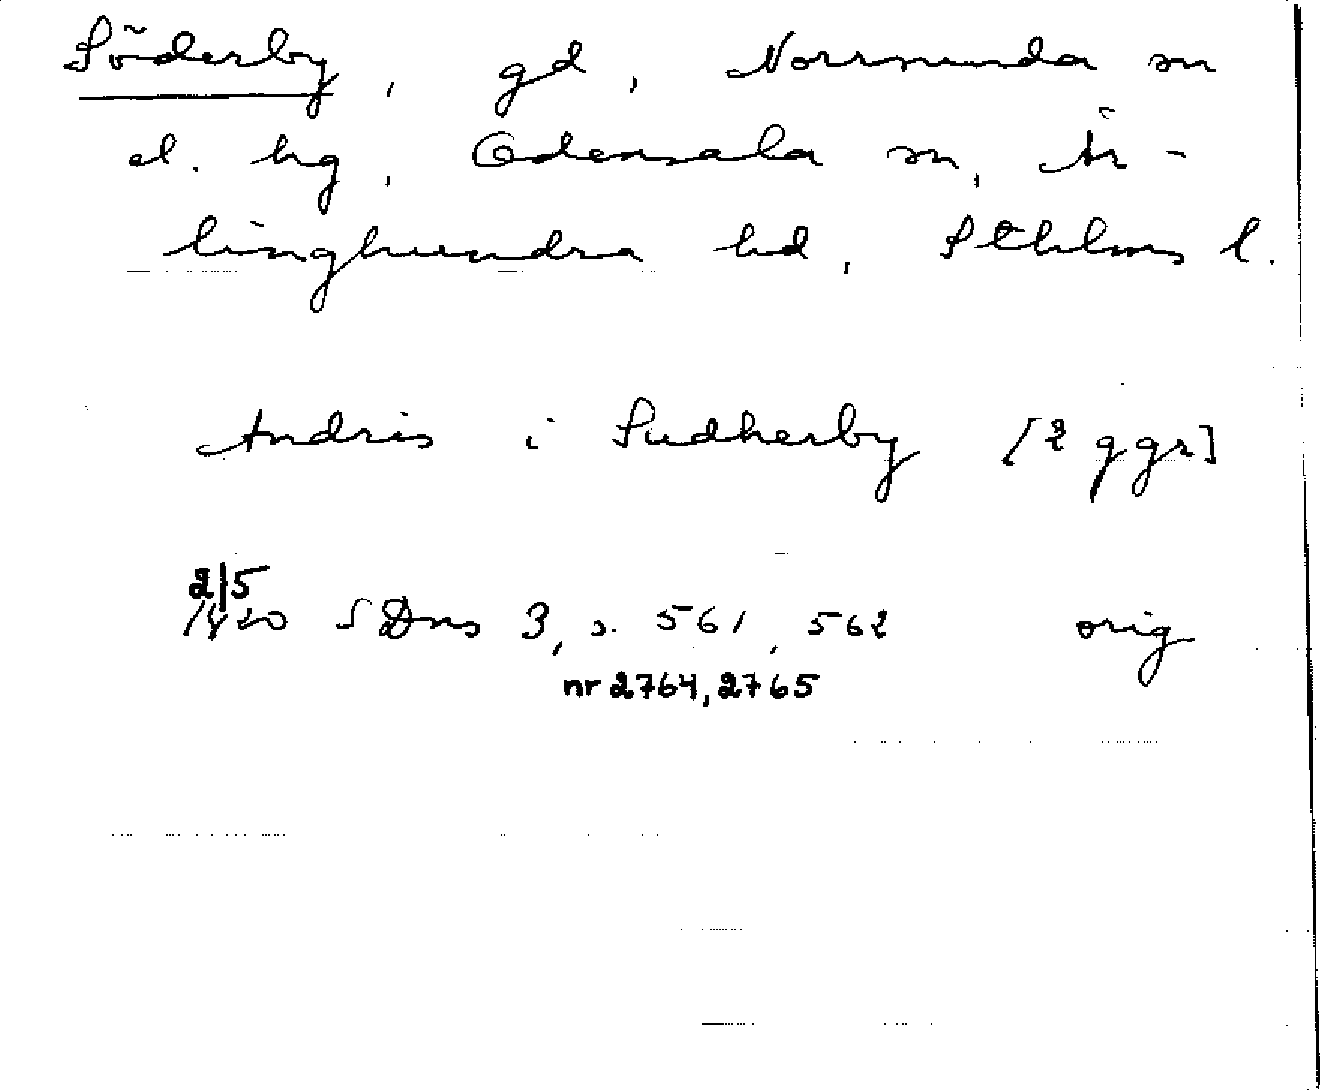 Söderby, gd, Norrsunda sn
el. hg, Odensala sn, Är-
linghundra hd, Sthlms l.
Andris i Sudherby [2 ggr]
2/5
1420 SDns 3, s. 561, 562 orig
nr 2764, 2765